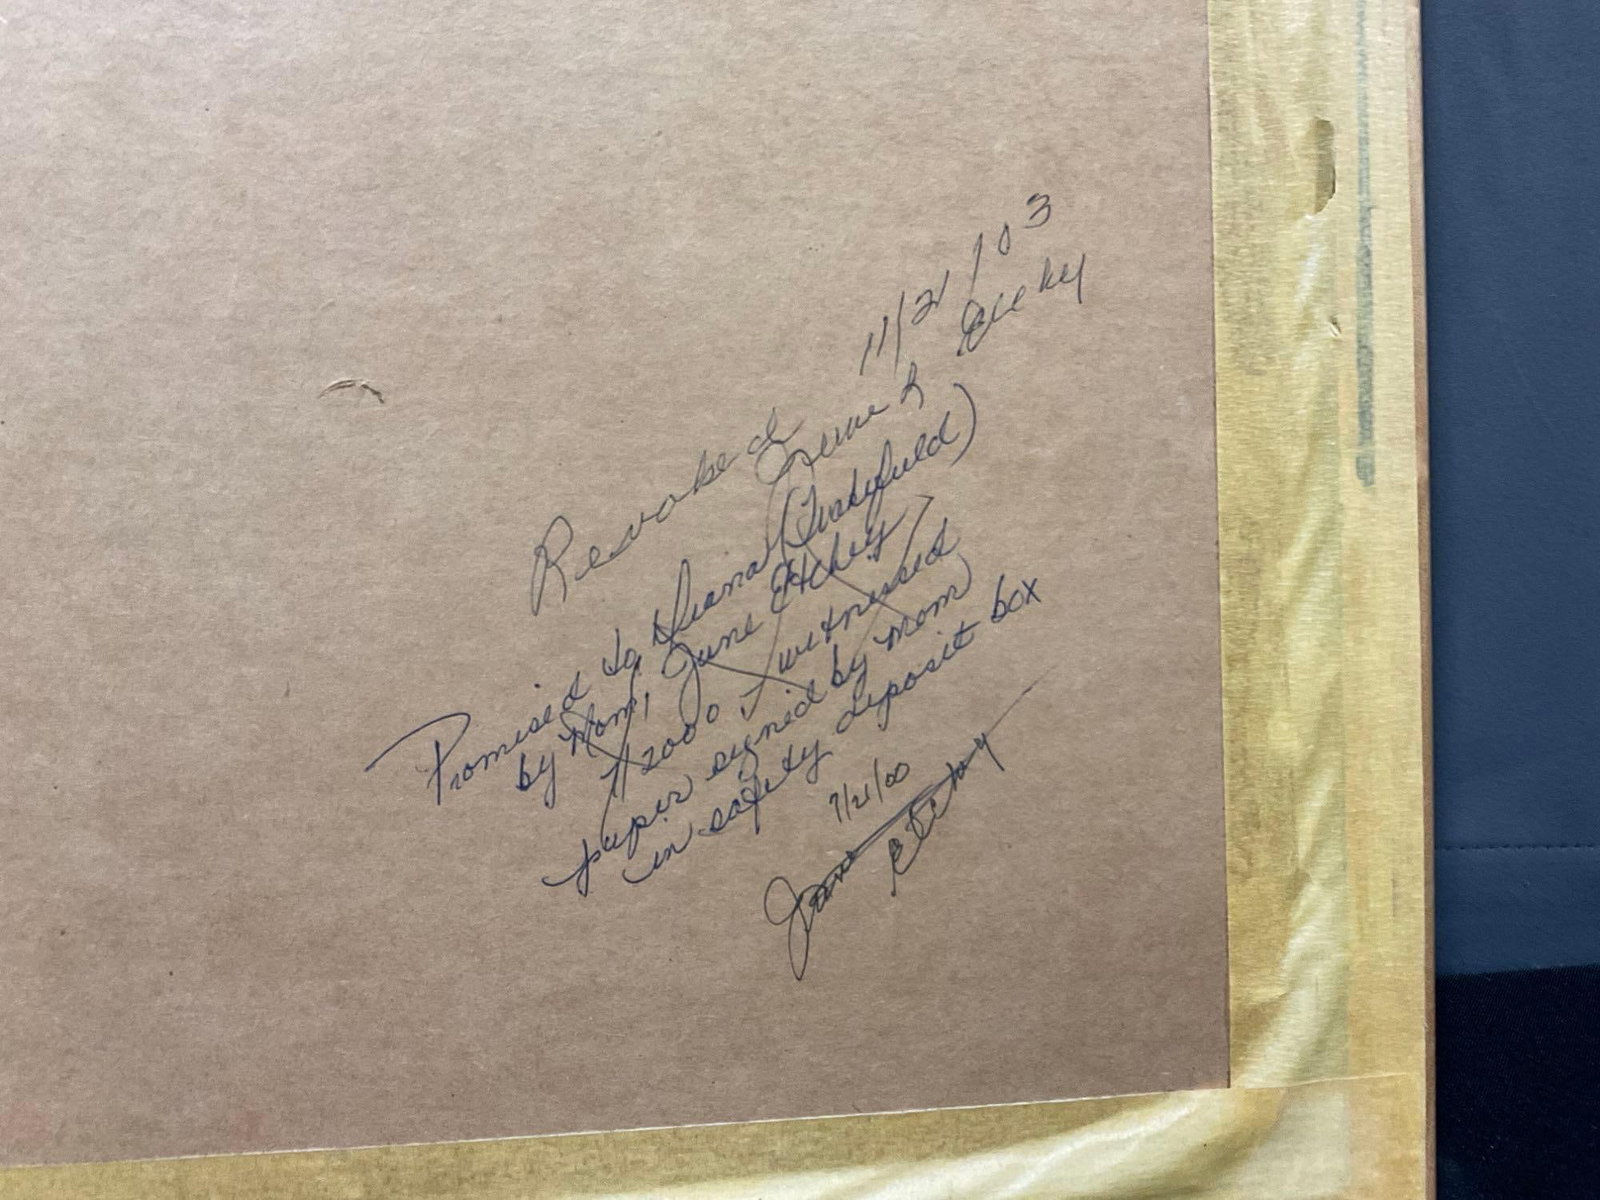 Revoked 11/21/03
June L Etchey
Promised to Deana (Wakefield)
by Mom, June Etchey
7/2000 witnessed
paper signed by Mom
in safety deposit box
7/21/00
June
Etchey